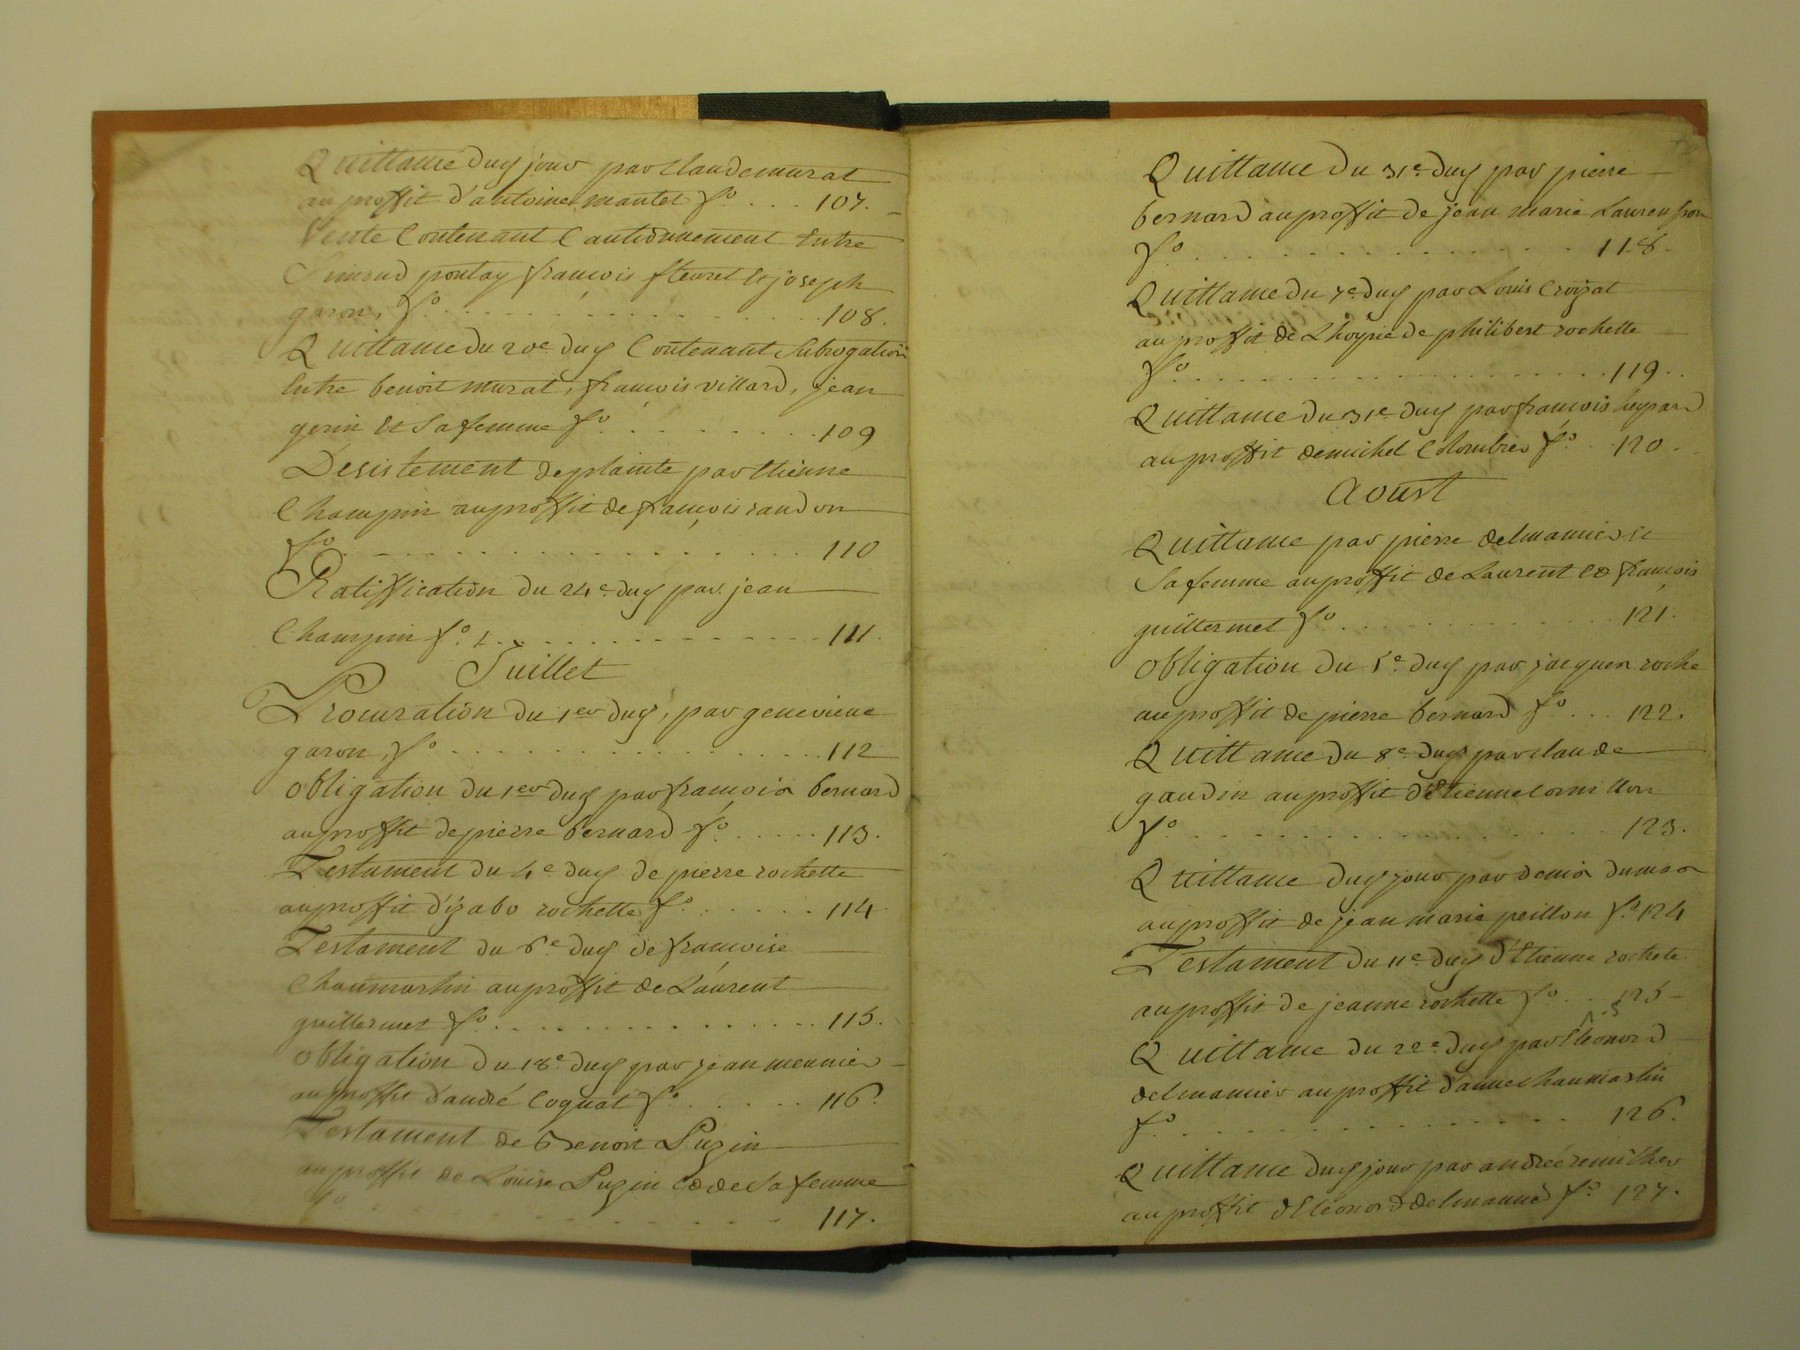 Quittance dud jour par Claude murat
au proffit d'antoine mantet fo. . . . 107.
Vente Contenant Cautionnement Entre
Simond pontay françois fleuret Et joseph
garon, fo. . . . . . . . . . . . 108.
Quittance du 20e dud Contenant Subrogation
Entre benoit murat, françois villard, jean
gerin Et Sa femme fo. . . . . . . . 109
Desistement de plainte par Etienne
Champin au proffit de françois randon
fo. . . . . . . . . . . . . . 110
Ratiffication du 24e dud par jean
Champin fo. . . . . . . . . . . . 111.
Juillet
Procuration du 1er dud, par genevieve
garon, fo. . . . . . . . . . . . 112
obligation du 1er dud par françois bernard
au proffit de pierre bernard fo. . . . . 113.
Testament du 4e dud de pierre rochette
au proffit d'izabo rochette fo. . . . . . 114
Testament du 6e dud de françoise
Chaumartin au proffit de Laurent
guillermet fo. . . . . . . . . . . . 115.
obligation du 18e dud par jean meunier
au proffit d'andré Coquat fo. . . . . . 116.
Testament de Benoit Puzin
au proffit de Louise Puzin Et de Sa femme
fo. . . . . . . . . . . . . 117.
Quittance du 31e dud par pierre
bernard au proffit de jean marie Laurenson
fo. . . . . . . . . . . . . 118.
Quittance du 7e dud par Louis Croizat
au proffit de L'hoyrie de philibert rochette
fo. . . . . . . . . . . . . . 119.
Quittance du 31e dud par françois
au proffit de michel Chombier fo. . 120.
Aoust
Quittance par pierre delmanier Et
Sa femme au proffit de Laurent Et françois
guillermet fo. . . . . . . . . . 121.
obligation du 5e dud par jacques roche
au proffit de pierre bernard fo. . . 122.
Quittance du 8e dud par Claude
gaudin au proffit d'Etienne Cornillon
fo. . . . . . . . . . . . . . 123.
Quittance dud jour par denis dumas
au proffit de jean marie peillon fo. 124
Testament du 11e dud d'Etienne rochete
au proffit de jeanne rochette fo. . . 125
Quittance du 22e dud par Eleonord
delmanier au proffit d'anne chaumartin
fo. . . . . . . . . . . . . . 126.
Quittance dud jour par andré remilher
au proffit d'Eleonord delmanier fo. 127.